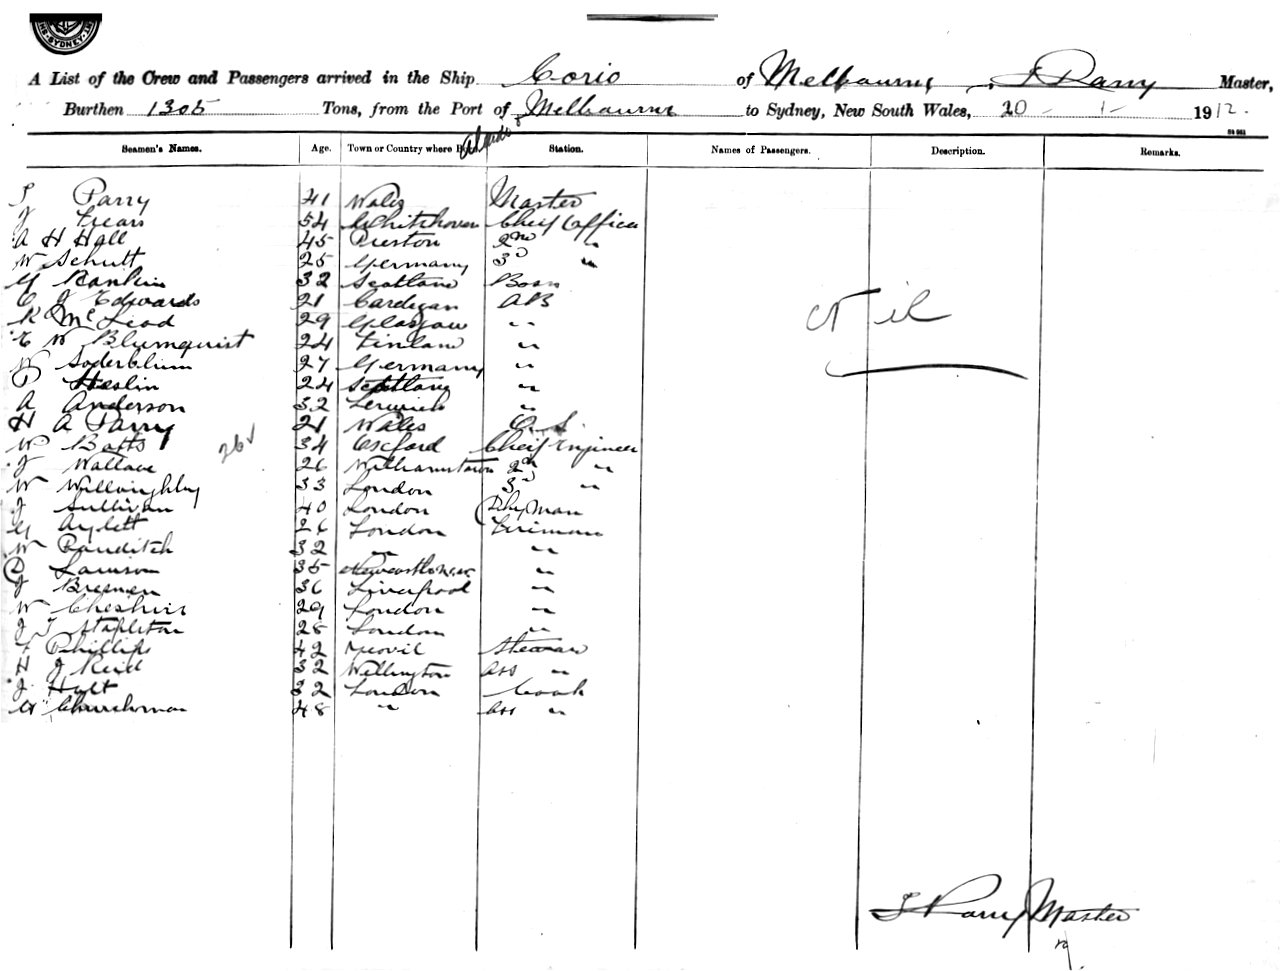 SYDNEY
A List of the Crew and Passengers arrived in the Ship Corio of Melbourne, Parry Master,
Burthen 1305 Tons, from the Port of Melbourne to Sydney, New South Wales, 20 - 1 - 1912.
Seamen's Names. Age. Town or Country where Station. Names of Passengers. Description. Remarks.
Parry 41 Wales Master
J Frears 54 Whitehaven Cheif Officer
A H Hall 45 Preston 2nd "
W Schutt 25 Germany 3d "
G Rankin 32 Scotland Bosn
C J Edwards 21 Cardigan AB
R McLeod 29 Glasgow "
E W Blumquist 24 Finland "
W Soderblum 27 Germany "
P Heslin 24 Scotland "
A Anderson 32 Lerwick "
H A Parry 21 Wales O.S.
W Batts 34 Oxford Cheif Engineer
J Wallace 26 Williamstown 2nd "
W Willoughby 33 London 3d "
J Sullivan 40 London Dkyman
G Aylett 26 London Fireman
W Panditch 32 " "
D Lawson 35 "
J Bremen 36 Liverpool "
W Cheshire 29 London "
J T Stapleton 28 London "
F Phillips 42 Yeovil Steward
H J Reid 32 Wellington Ass "
J Holt 32 London Cook
W Churchman 48 " Ass "
26 ✓
Nil
Parry Master